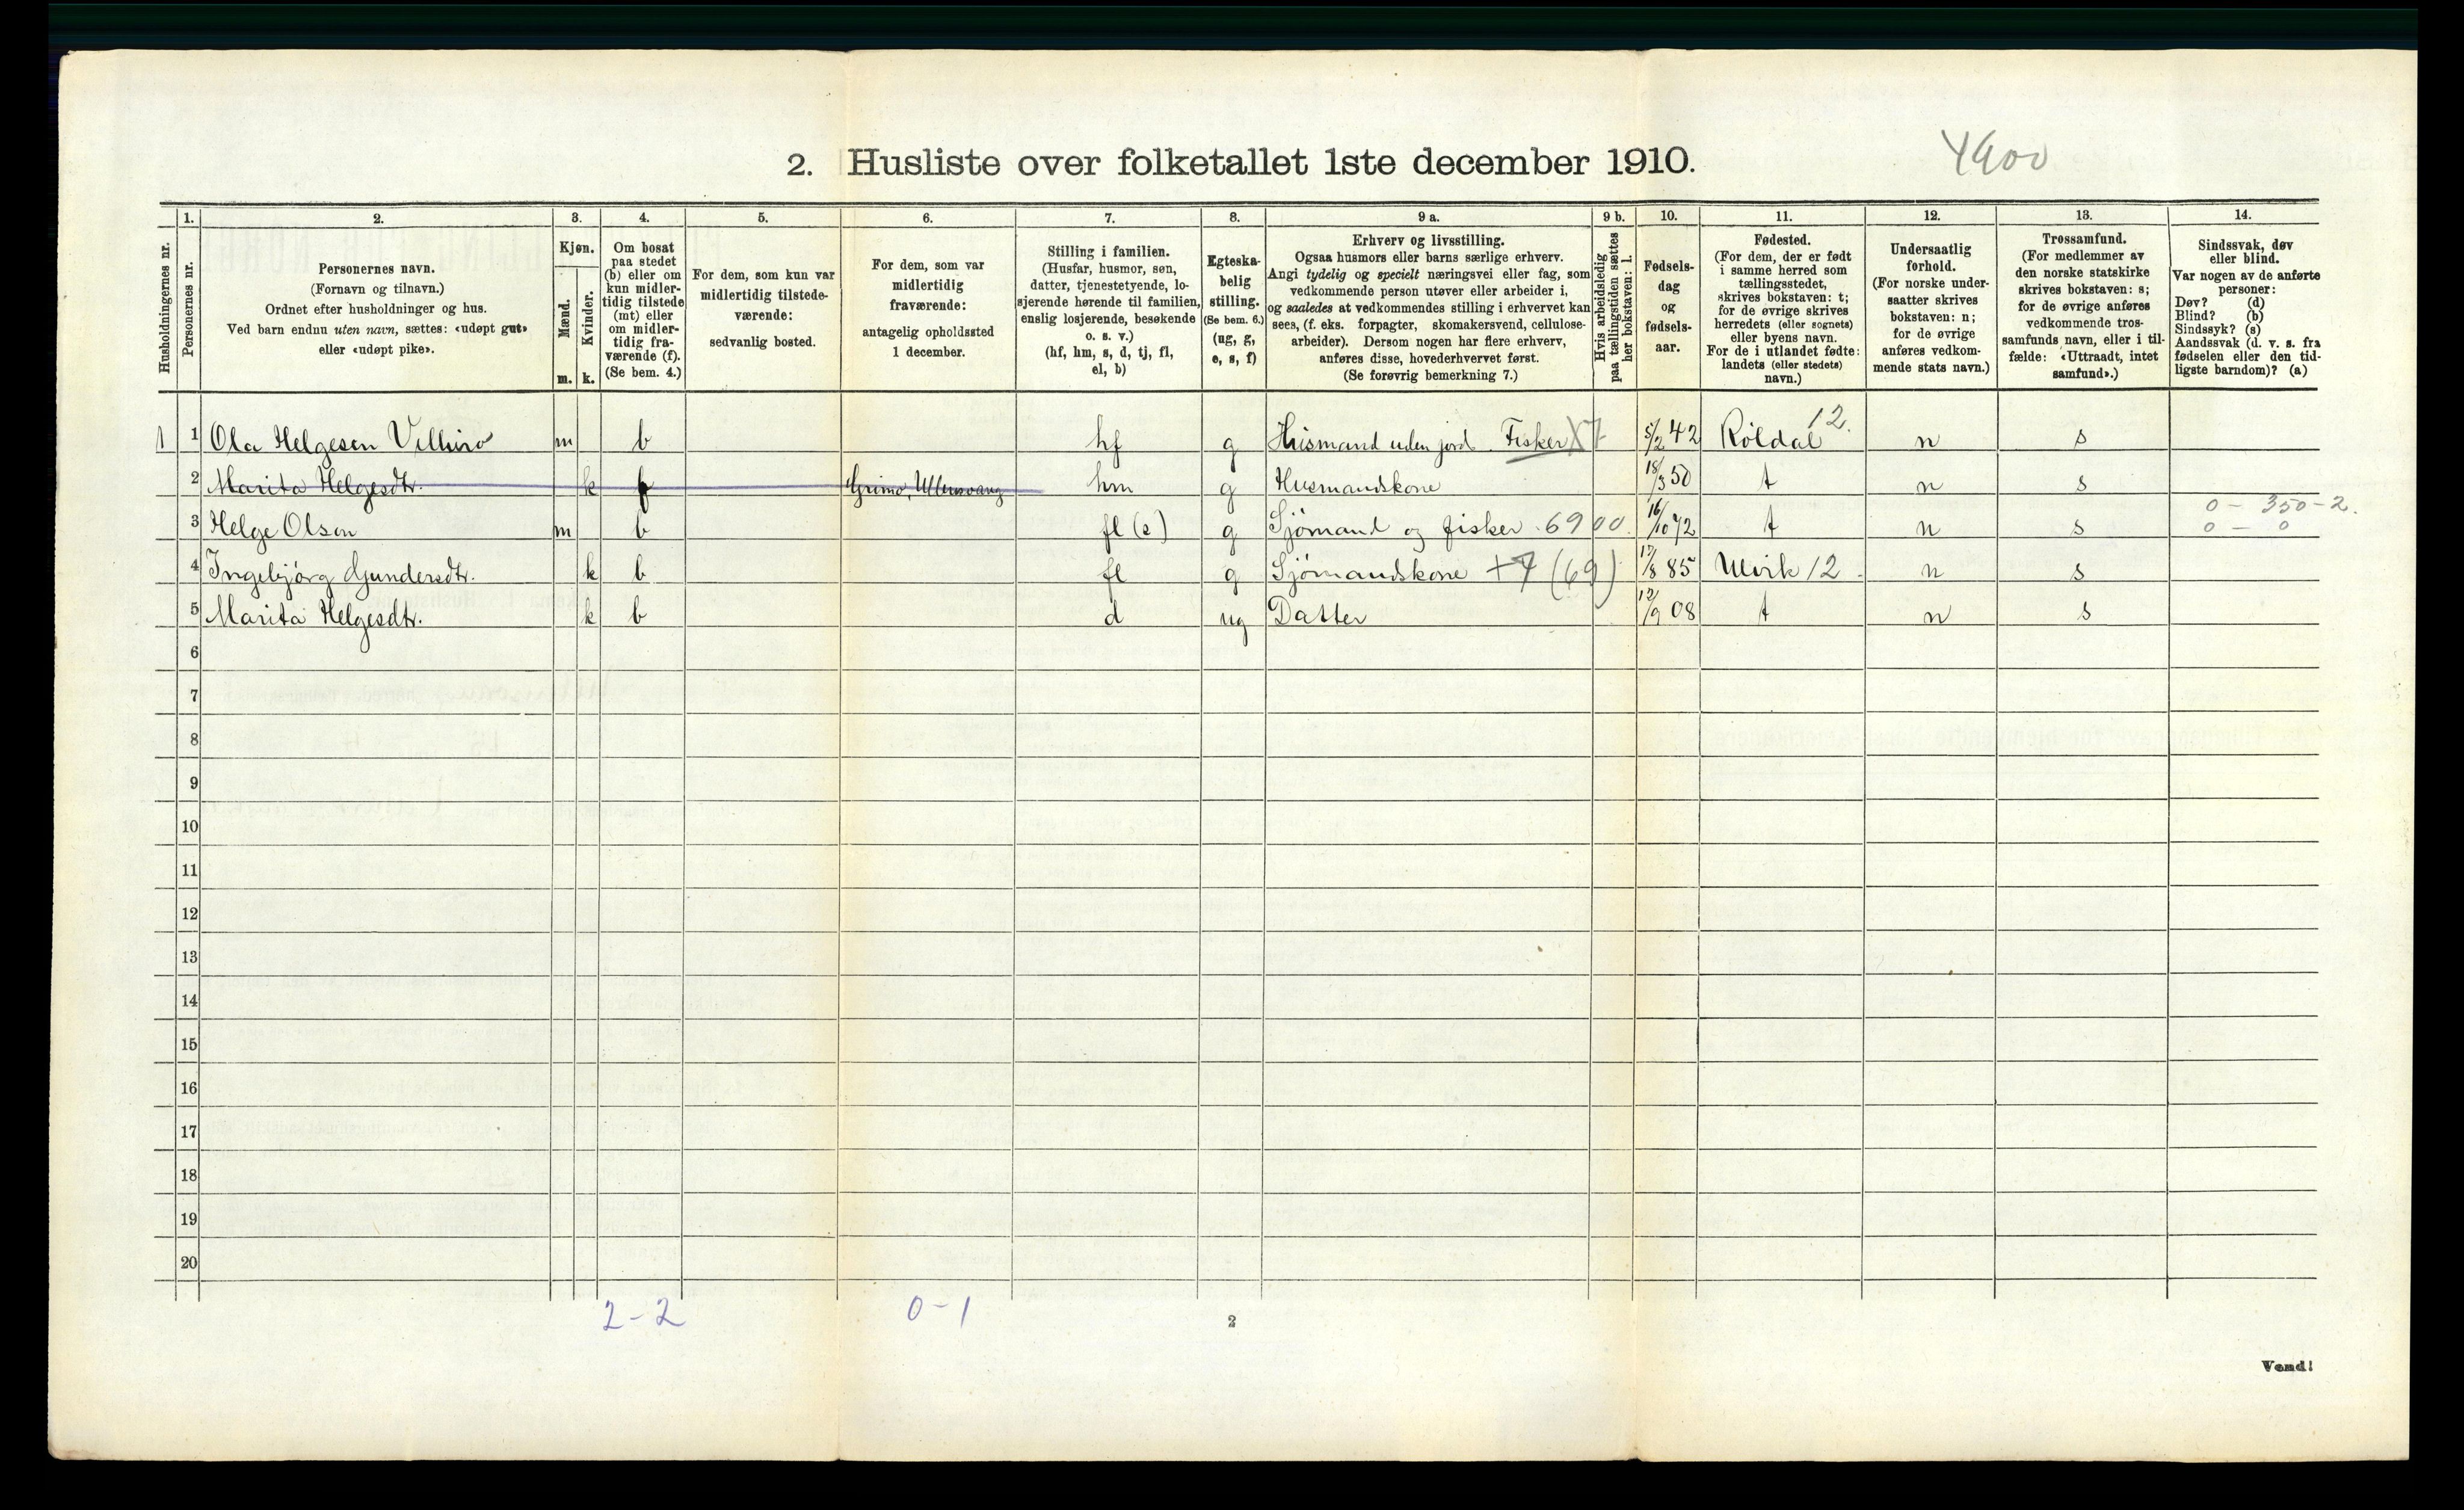 2. Husliste over folketallet 1ste december 1910.
4900
1. 2. 3. 4. 5. 6. 7. 8. 9 a. 9 b. 10. 11. 12. 13. 14.
Husholdningernes nr.
Personernes nr.
Personernes navn.
(Fornavn og tilnavn.)
Ordnet efter husholdninger og hus.
Ved barn endnu uten navn, sættes: «udøpt gut»
eller «udøpt pike».
Kjøn.
Mænd.
Kvinder.
m. k.
Om bosat
paa stedet
(b) eller om
kun midler-
tidig tilstede
(mt) eller
om midler-
tidig fra-
værende (f).
(Se bem. 4.)
For dem, som kun var
midlertidig tilstede-
værende:
sedvanlig bosted.
For dem, som var
midlertidig
fraværende:
antagelig opholdssted
1 december.
Stilling i familien.
(Husfar, husmor, søn,
datter, tjenestetyende, lo-
sjerende hørende til familien,
enslig losjerende, besøkende
o. s. v.)
(hf, hm, s, d, tj, fl,
el, b)
Egteska-
belig
stilling.
(Se bem. 6.)
(ug, g,
e, s, f)
Erhverv og livsstilling.
Ogsaa husmors eller barns særlige erhverv.
Angi tydelig og specielt næringsvei eller fag, som
vedkommende person utøver eller arbeider i,
og saaledes at vedkommendes stilling i erhvervet kan
sees, (f. eks. forpagter, skomakersvend, cellulose-
arbeider). Dersom nogen har flere erhverv,
anføres disse, hovederhvervet først.
(Se forøvrig bemerkning 7.)
Hvis arbeidsledig
paa tællingstiden sættes
her bokstaven: l.
Fødsels-
dag
og
fødsels-
aar.
Fødested.
(For dem, der er født
i samme herred som
tællingsstedet,
skrives bokstaven: t;
for de øvrige skrives
herredets (eller sognets)
eller byens navn.
For de i utlandet fødte:
landets (eller stedets)
navn.)
Undersaatlig
forhold.
(For norske under-
saatter skrives
bokstaven: n;
for de øvrige
anføres vedkom-
mende stats navn.)
Trossamfund.
(For medlemmer av
den norske statskirke
skrives bokstaven: s;
for de øvrige anføres
vedkommende tros-
samfunds navn, eller i til-
fælde: «Uttraadt, intet
samfund».)
Sindssvak, døv
eller blind.
Var nogen av de anførte
personer:
Døv? (d)
Blind? (b)
Sindssyk? (s)
Aandssvak (d. v. s. fra
fødselen eller den tid-
ligste barndom)? (a)
1 1 Ola Helgesen m b hf g Husmand uden jord. Fisker X7 5/2 42 Röldal 12. n s
2 Marita Helgesdtr. k f Grimo, Ullensvang hm g Husmandskone 18/3 50 t n s
0 - 350 - 2.
3 Helge Olsen m b fl (s) g Sjömand og fisker 6900. 16/10 72 t n s 0 - 0
4 Ingebjörg Gundersdtr. k b fl g Sjömandskone +7 (69) 17/8 85 Ulvik 12 n s
5 Marita Helgesdtr. k b d ug Datter 12/9 08 t n s
6
7
8
9
10
11
12
13
14
15
16
17
18
19
20
2-2 0-1
2
Vend!